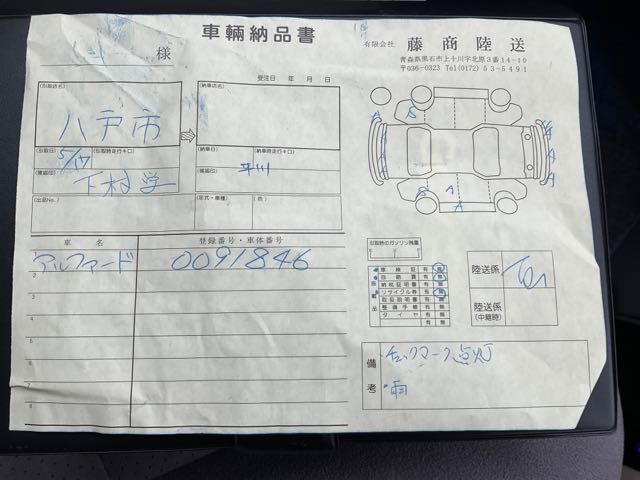 車輌納品書
様
有限会社 藤商陸送
青森県黒石市上十川字北原3番14-10
〒036-0323 Tel(0172)53-5491
受注日 年 月 日
(引取店名)
八戸市
(納車店名)
(引取日) 5/17 (引取時走行キロ)
(納車日) (納車時走行キロ)
(確認印) 下村学
(確認印) 平川
(出品No.)
(年式・車種) (色)
車名 登録番号・車体番号
アルファード 0091846
2
3
4
5
6
7
8
A A A A A A A A
引取時のガソリン残量
車検証 有 無
自賠責 有 無
納税証明書 有 無
リサイクル券 有 無
取扱説明書 有 無
整備手帳 有 無
タイヤ 有 無
陸送係
陸送係
(中継時)
備考
・チェックマーク点灯
・雨